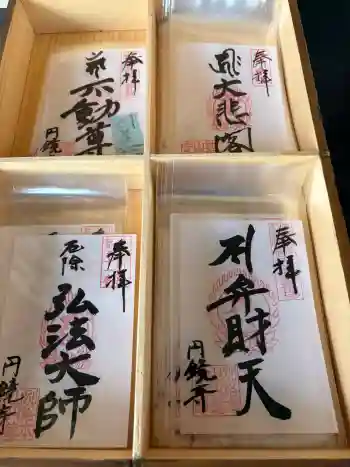 奉拝
不動尊
円鏡寺
奉拝
大悲閣
奉拝
厄除
弘法大師
円鏡寺
奉拝
弁財天
円鏡寺